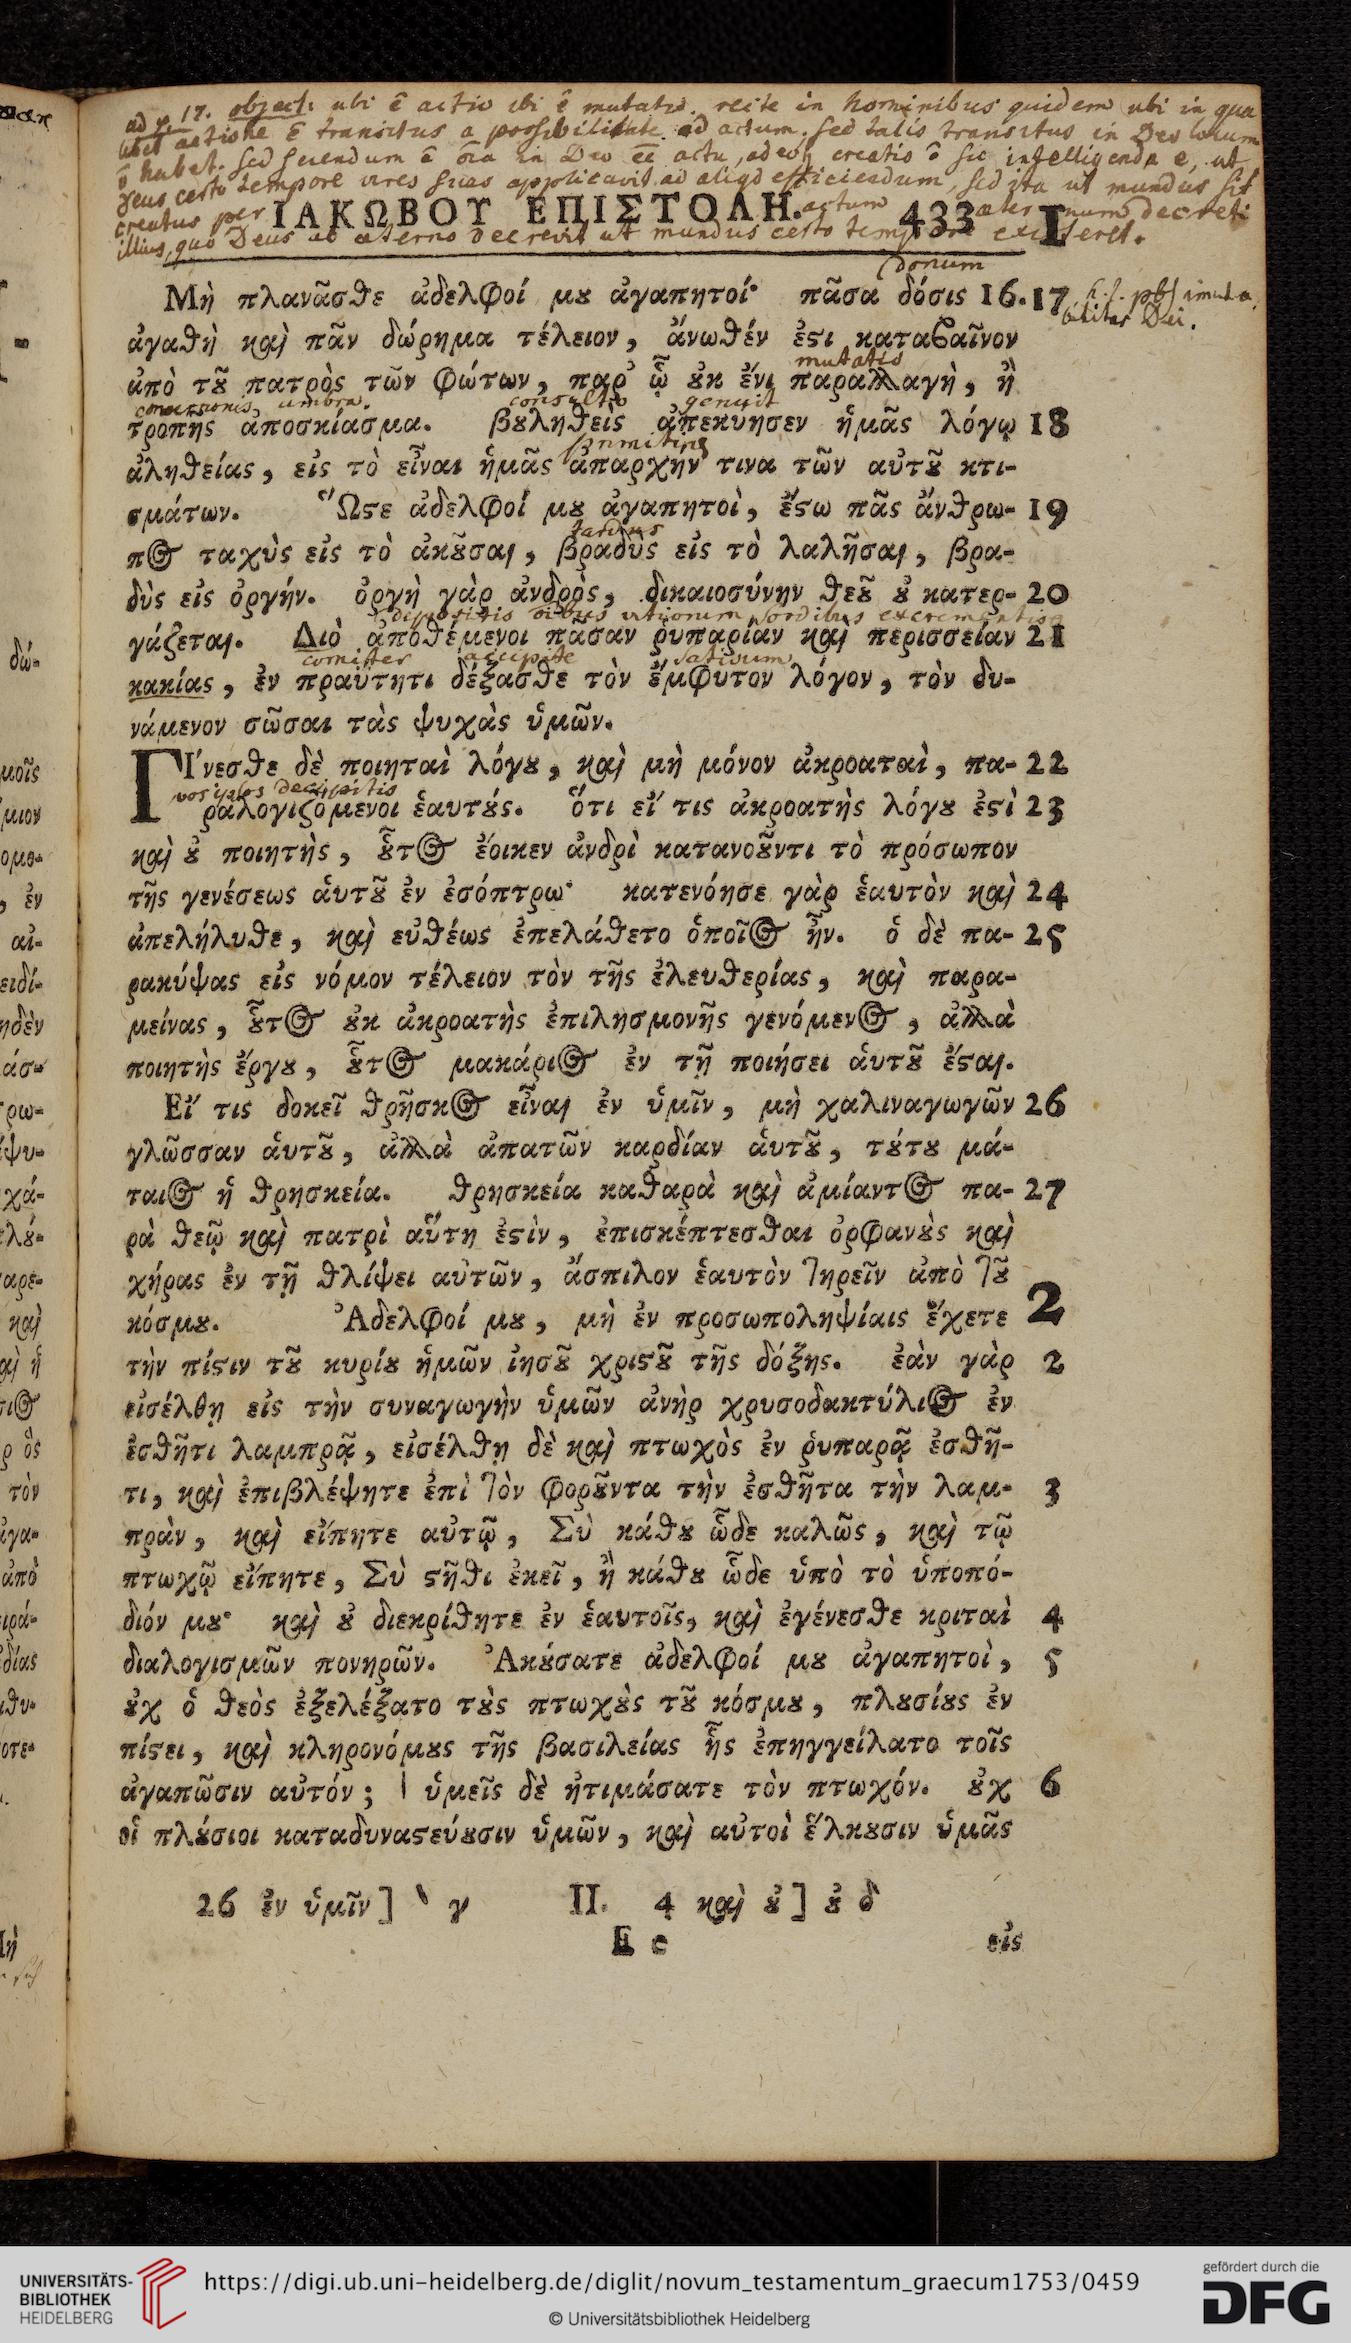 ad v. 17. object: ubi ē actio ibi ē mutatio. recte in hominibus quidem ubi in qua
libet actione ē transitus a possibilitate ad actum, sed talis transitus in Deo locum
ō habet. sed sciendum ē ōia in Deo eē actu, adeoq creatio ō sic intelligenda ē, ut
Deus certo tempore vires suas applicavit ad aliqd efficiendum, sed ita ut mundus sit
creatus per actum aeternum decreti
ΙΑΚΩΒΟΥ ΕΠΙΣΤΟΛΗ. 433 I
illius, quo Deus ab aeterno decrevit ut mundus certo tempore existeret.
donum
Μὴ πλανᾶσθε ἀδελφοί μȣ ἀγαπητοί· πᾶσα δόσις 16.17
Dei.
ἀγαθὴ καὶ πᾶν δώρημα τέλειον, ἄνωθέν ἐϛι καταβαῖνον
mutatio
ἀπὸ τȣ͂ πατρὸς τῶν φώτων, παρ᾽ ᾧ ȣ̓κ ἔνι παραλλαγὴ, ἢ
conversionis umbra. consulto genuit
τροπῆς ἀποσκίασμα. βȣληθεὶς ἀπεκύησεν ἡμᾶς λόγῳ 18
primitias
ἀληθείας, εἰς τὸ εἶναι ἡμᾶς ἀπαρχήν τινα τῶν αὐτȣ͂ κτι-
σμάτων. Ὥϛε ἀδελφοί μȣ ἀγαπητοὶ, ἔϛω πᾶς ἄνθρω- 19
tardus
πος ταχὺς εἰς τὸ ἀκȣ͂σαι, βραδὺς εἰς τὸ λαλῆσαι, βρα-
δὺς εἰς ὀργήν. ὀργὴ γὰρ ἀνδρὸς, δικαιοσύνην θεȣ͂ ȣ̓ κατερ- 20
depositis oibus vitiorum sordibus
γάζεται. Διὸ ἀποθέμενοι πᾶσαν ῥυπαρίαν καὶ περισσείαν 21
comiter accipite sativum
κακίας, ἐν πραΰτητι δέξασθε τὸν ἔμφυτον λόγον, τὸν δυ-
νάμενον σῶσαι τὰς ψυχὰς ὑμῶν.
Γίνεσθε δὲ ποιηταὶ λόγȣ, καὶ μὴ μόνον ἀκροαταὶ, πα- 22
vos ipsos decipitis
ραλογιζόμενοι ἑαυτȣ́ς. ὅτι εἴ τις ἀκροατὴς λόγȣ ἐϛὶ 23
καὶ ȣ̓ ποιητὴς, ȣ̔͂τος ἔοικεν ἀνδρὶ κατανοȣ͂ντι τὸ πρόσωπον
τῆς γενέσεως αὑτȣ͂ ἐν ἐσόπτρω· κατενόησε γὰρ ἑαυτὸν καὶ 24
ἀπελήλυθε, καὶ εὐθέως ἐπελάθετο ὁποῖος ἦν. ὁ δὲ πα- 25
ρακύψας εἰς νόμον τέλειον τὸν τῆς ἐλευθερίας, καὶ παρα-
μείνας, ȣ̔͂τος ȣ̓κ ἀκροατὴς ἐπιλησμονῆς γενόμενος, ἀλλὰ
ποιητὴς ἔργȣ, ȣ̔͂τος μακάριος ἐν τῇ ποιήσει αὑτȣ͂ ἔϛαι.
Εἴ τις δοκεῖ θρῆσκος εἶναι ἐν ὑμῖν, μὴ χαλιναγωγῶν 26
γλῶσσαν αὑτȣ͂, ἀλλὰ ἀπατῶν καρδίαν αὑτȣ͂, τȣ́τȣ μά-
ταιος ἡ θρησκεία. θρησκεία καθαρὰ καὶ ἀμίαντος πα- 27
ρὰ θεῷ καὶ πατρὶ αὕτη ἐϛὶν, ἐπισκέπτεσθαι ὀρφανȣ̀ς καὶ
χήρας ἐν τῇ θλίψει αὐτῶν, ἄσπιλον ἑαυτὸν τηρεῖν ἀπὸ τȣ͂
κόσμȣ. Ἀδελφοί μȣ, μὴ ἐν προσωποληψίαις ἔχετε 2
τὴν πίϛιν τȣ͂ κυρίȣ ἡμῶν ἰησȣ͂ χριϛȣ͂ τῆς δόξης. ἐὰν γὰρ 2
εἰσέλθῃ εἰς τὴν συναγωγὴν ὑμῶν ἀνὴρ χρυσοδακτύλιος ἐν
ἐσθῆτι λαμπρᾷ, εἰσέλθῃ δὲ καὶ πτωχὸς ἐν ῥυπαρᾷ ἐσθῆ-
τι, καὶ ἐπιβλέψητε ἐπὶ τὸν φορȣ͂ντα τὴν ἐσθῆτα τὴν λαμ- 3
πρὰν, καὶ εἴπητε αὐτῷ, Σὺ κάθȣ ὧδε καλῶς, καὶ τῷ
πτωχῷ εἴπητε, Σὺ ϛῆθι ἐκεῖ, ἢ κάθȣ ὧδε ὑπὸ τὸ ὑποπό-
διόν μȣ· καὶ ȣ̓ διεκρίθητε ἐν ἑαυτοῖς, καὶ ἐγένεσθε κριταὶ 4
διαλογισμῶν πονηρῶν. Ἀκȣ́σατε ἀδελφοί μȣ ἀγαπητοὶ, 5
ȣ̓χ ὁ θεὸς ἐξελέξατο τȣ̀ς πτωχȣ̀ς τȣ͂ κόσμȣ, πλȣσίȣς ἐν
πίϛει, καὶ κληρονόμȣς τῆς βασιλείας ἧς ἐπηγγείλατο τοῖς
ἀγαπῶσιν αὐτόν; | ὑμεῖς δὲ ἠτιμάσατε τὸν πτωχόν. ȣ̓χ 6
οἱ πλȣ́σιοι καταδυναϛεύȣσιν ὑμῶν, καὶ αὐτοὶ ἕλκȣσιν ὑμᾶς
26 ἐν ὑμῖν] ‵ γ II. 4 καὶ ȣ̓] ȣ̓ δ
E e εἰς
UNIVERSITÄTS-
BIBLIOTHEK
HEIDELBERG
https://digi.ub.uni-heidelberg.de/diglit/novum_testamentum_graecum1753/0459
© Universitätsbibliothek Heidelberg
gefördert durch die
DFG